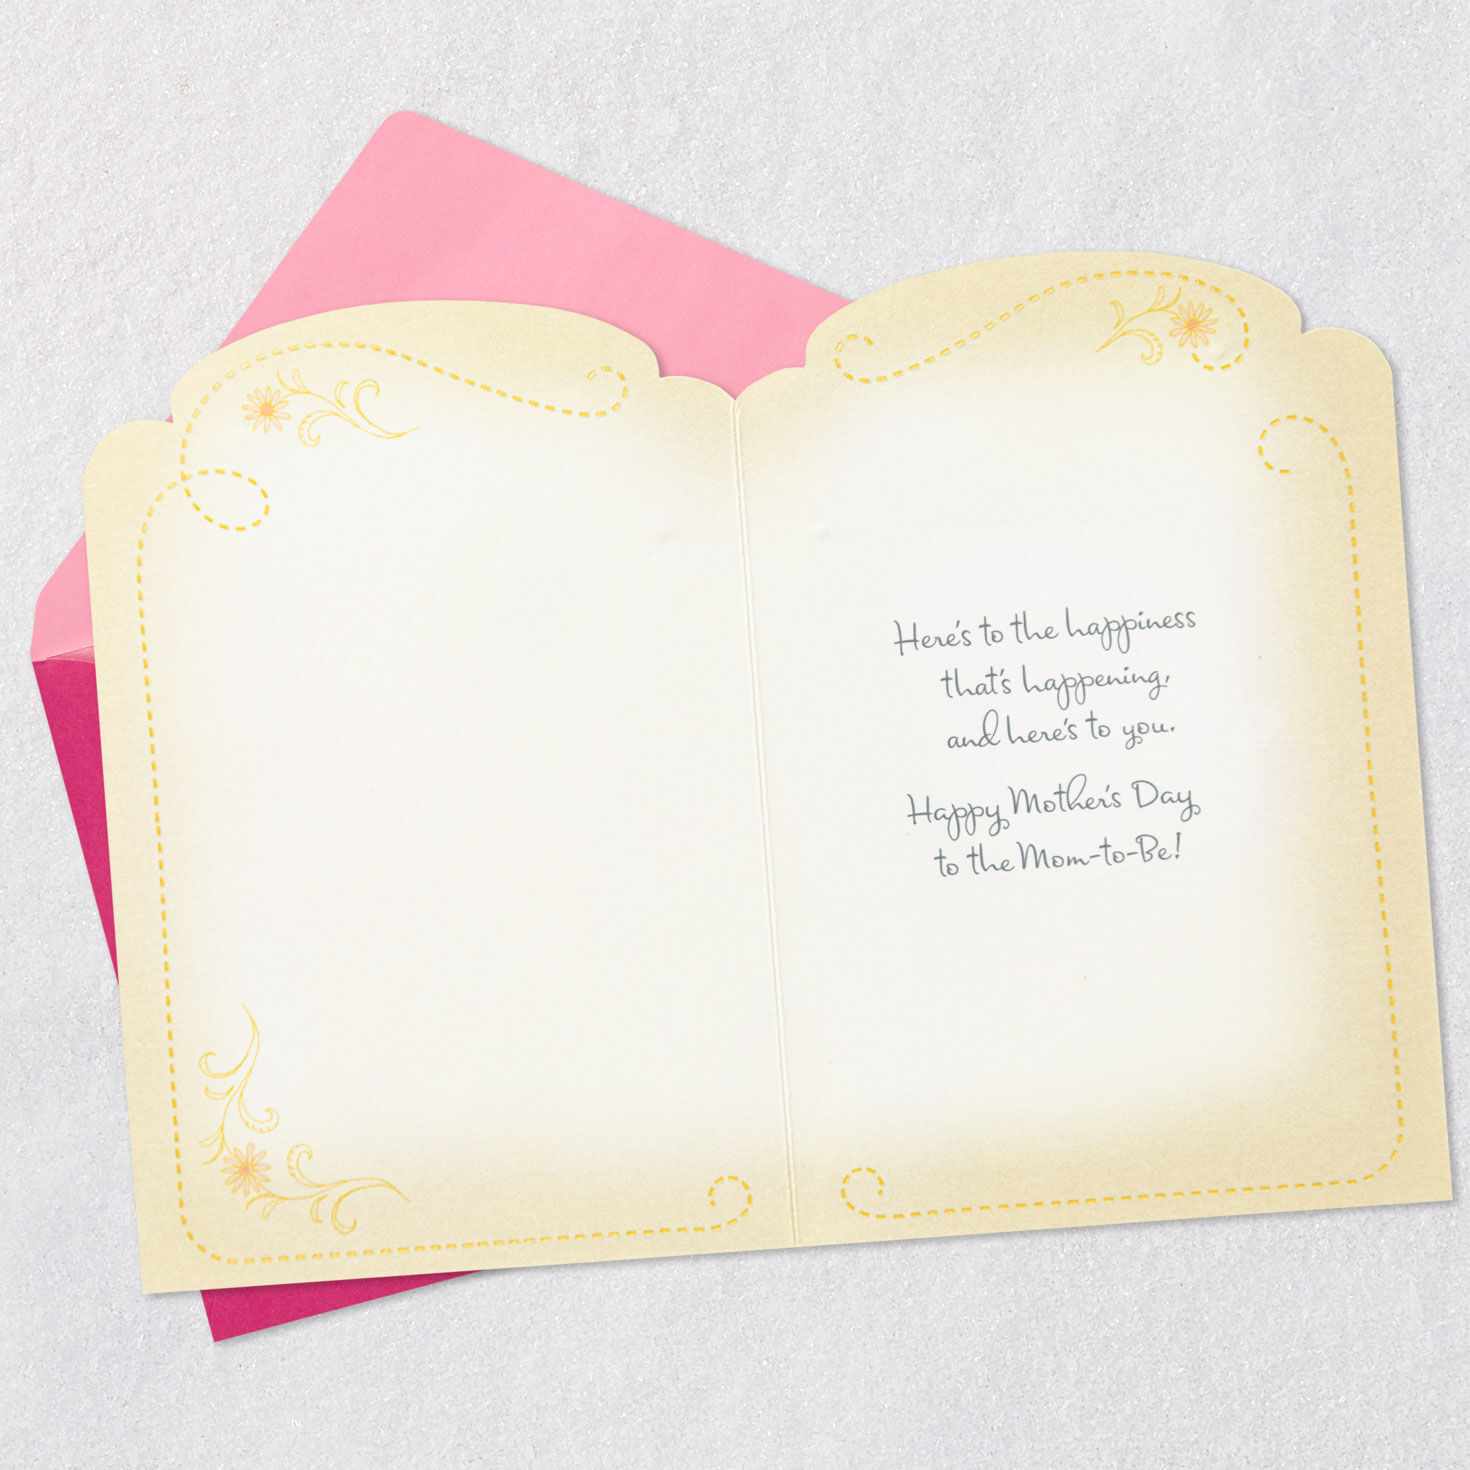 Here's to the happiness
that's happening,
and here's to you.
Happy Mother's Day
to the Mom-to-Be!